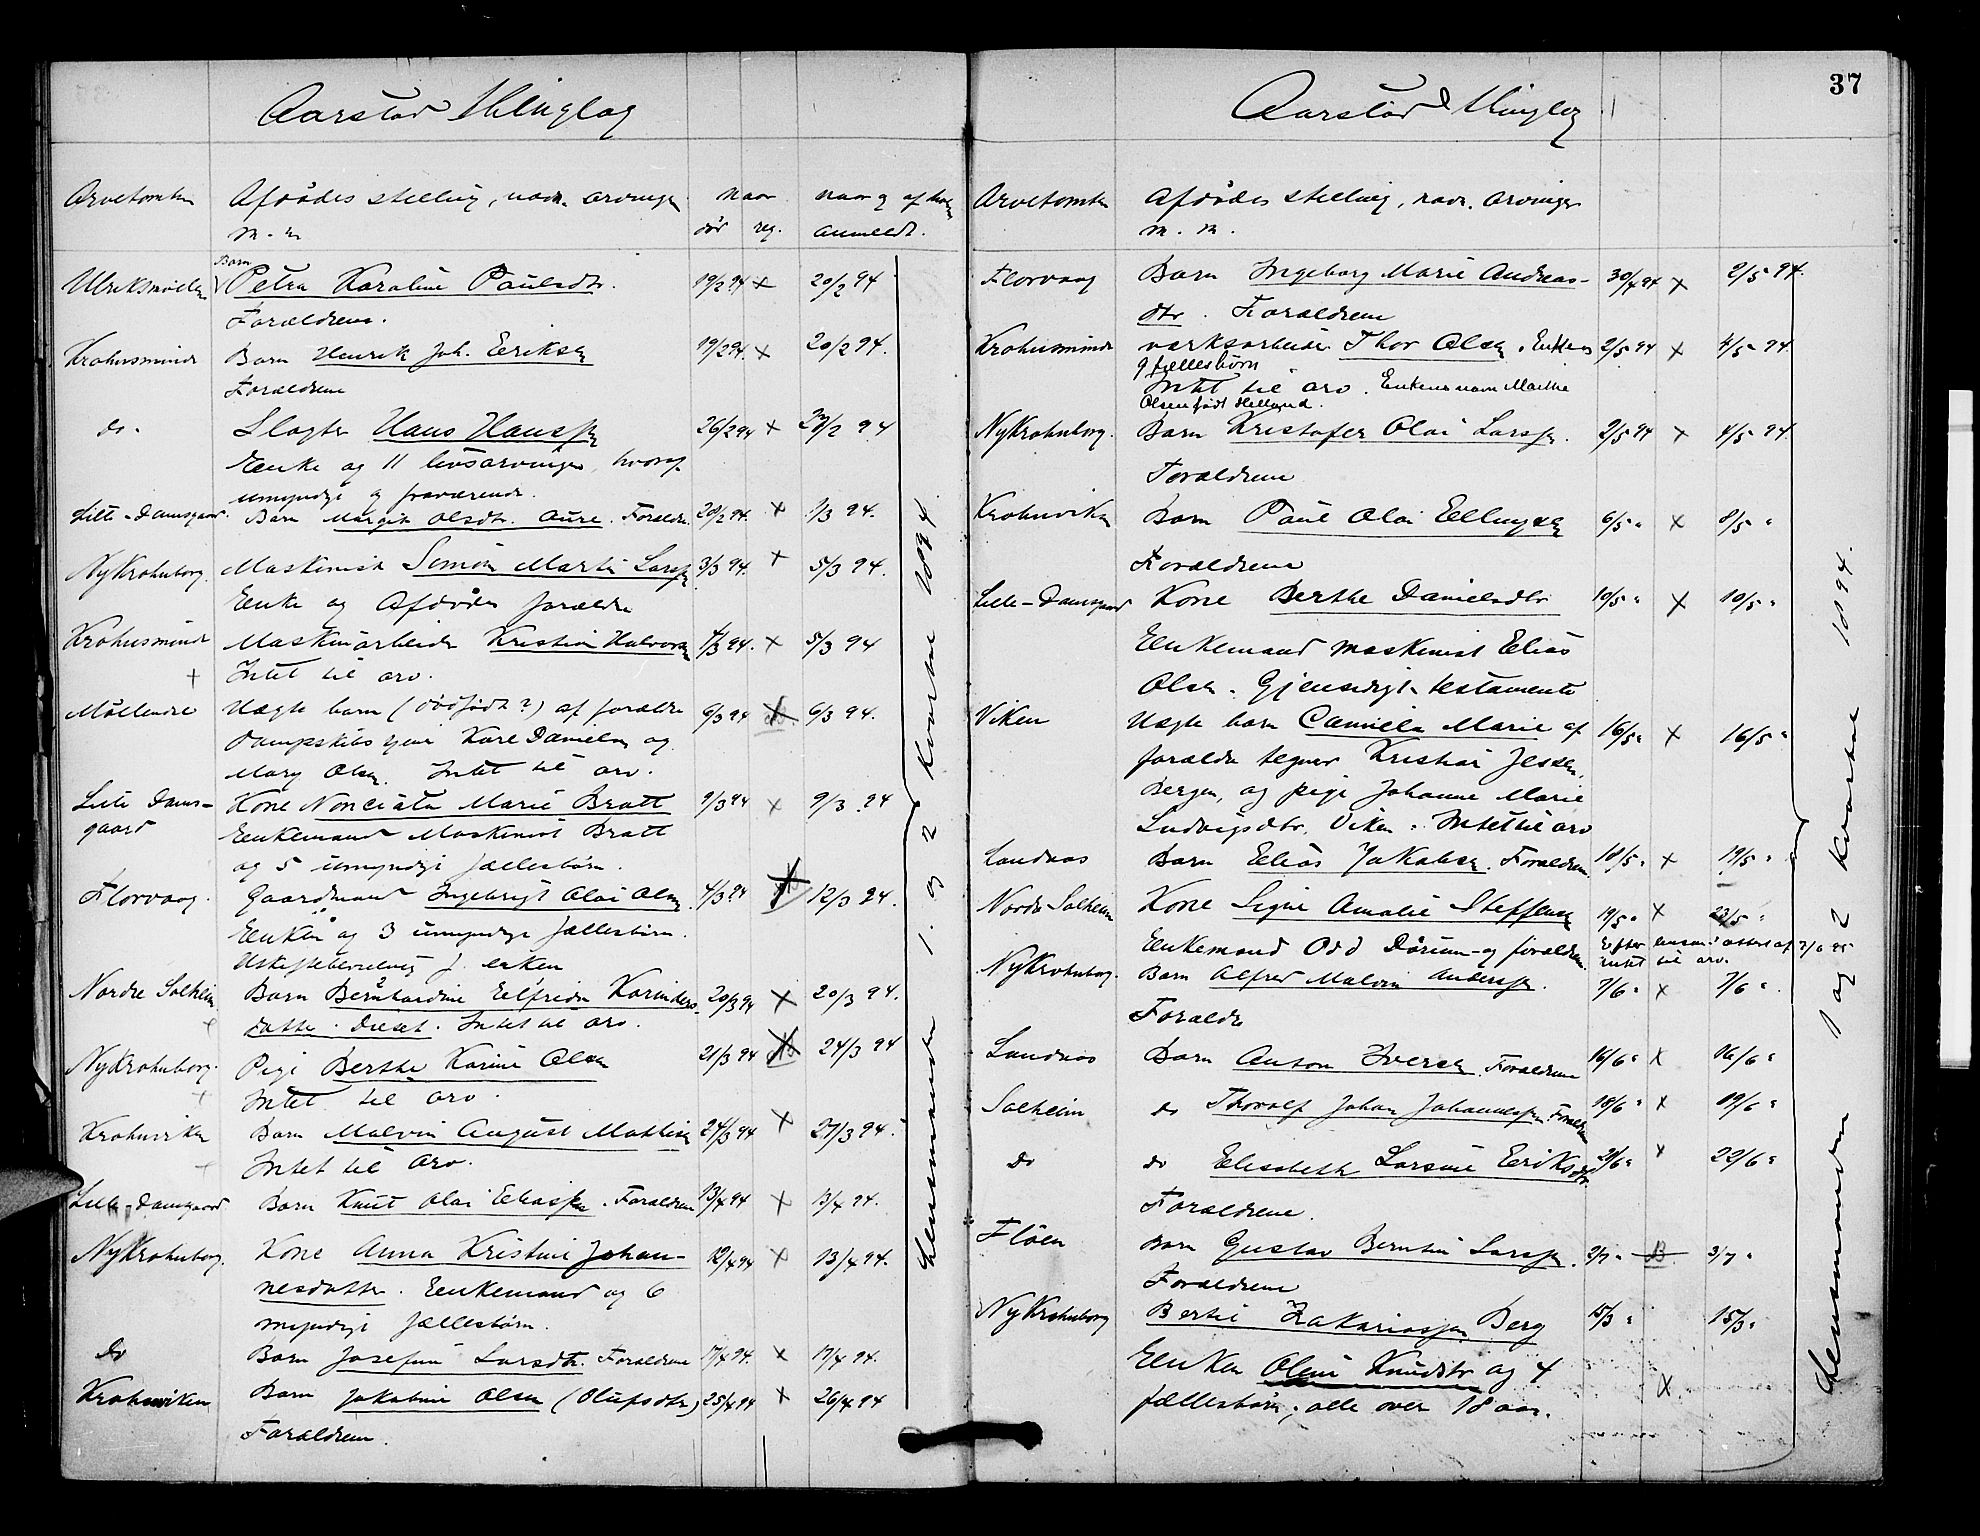 Aarstad Thinglag
Arvetomten Afdødes stilling, navn. arvinger naar naar og af hvem
m. m. dør reg. anmeldt.
Barn
Ulriksmøllen Petra Karoline Paulsdtr. 19/2 94 x 20/2 94
Forældrene.
Krohnsminde Barn Henrik Joh. Eriksen 19/2 94. x 20/2 94.
Forældrene
do. Slagter Hans Hanssen 26/2 94 x 27/2 94
Enke og 11 livsarvinger, hvoraf
umyndige og fraværende.
Lille-Damsgaard. Barn Margit Olsdtr. Aure. Forældr. 28/2 94. x 1/3 94.
Ny Krohnborg. Maskinist Simon Martin Larssen 3/3 94. x 5/3 94.
Enke og Afdødes forældre
Krohnsminde Maskinarbeider Kristian Halvorsen 4/3 94. x 5/3 94
+ Intet til arv.
Møllendal Uægte barn (dødfødt?) af forældre 6/3 94 x 6/3 94.
Dampskibs Karl Danielsen og
Mary Olsen. Intet til arv.
Lille Dams- Kone Nonciata Marie Bratt 9/3 94 x 9/3 94
gaard Enkemand Maskinist Bratt
og 5 umyndige fællesbørn.
Florvaag. Gaardmand Ingebrigt Olai Olsen 4/3 94 x 12/3 94.
Enken og 3 umyndige fællesbørn.
Uskiftebevilling f. enken
Nordre Solheim Barn Bernhardine Elfrida Karinders- 20/3 94 x 20/3 94.
+ datter. Intet til arv.
Ny Krohnborg. Pige Berthe Karine Olsen 21/3 94 x 24/3 94
+ Intet til arv.
Krohnviken Barn Malvin August Mathisen 24/3 94 x 27/3 94.
+ Intet til Arv.
Lille-Damsgaard Barn Knut Olai Eliassen. Forældrene 13/4 94 x 13/4 94.
Ny Krohnborg. Kone Anna Kristine Johan- 12/4 94 x 13/4 94.
nesdatter. Enkemand og 6
myndige fællesbørn.
Do Barn Josefine Larsdtr. Forældrene 17/4 94. x 17/4 94.
Krohnviken Barn Jakobine Olsen (Olufsdtr) 25/4 94 x 26/4 94
Forældrene.
Lensmanden 1. og 2 kvartal 1894.
37
Aarstad Thinglag
Arvetomten Afdødes stilling, navn. Arvinger
m. m.
Florvaag Barn Ingeborg Marie Andreas- 30/4 94 x 2/5 94.
dtr. Forældrene
Krohnsminde værksarbeider Thor Olsen. Enken 2/5 94 x 4/5 94.
og fællesbørn
Intet til arv. Enkens navn Marthe
Olsen født Helland.
Ny Krohnborg. Barn Kristofer Olai Larssen. 2/5 94 x 4/5 94.
Forældrene
Krohnviken Barn Paul Olai Ellingsen 6/5 " x 8/5 "
Forældrene
Lille-Damsgaard Kone Berthe Danielsdtr 10/5 " x 10/5 "
Enkemand maskinist Elias
Olsen. Gjensidigt testamente
Viken Uægte barn Camilla Marie af 16/5 " x 16/5 "
forældre tegner Kristian Jessen,
Bergen, og pige Johanne Marie
Ludvigsdtr, Viken. Intet til arv
Landaas Barn Elias Jakobsen. Forældrene 18/5 " x 19/5 "
Nordre Solheim Kone Signe Amalie Steffensen 19/5 " x 23/5 "
Enkemand Odd Dørum og forældrene. Efter lensm. attest af 7/6 95
intet til arv.
Ny Krohnborg. Barn Alfred Malvin Anderssen. 7/6 " x 7/6 "
Forældr
Landaas Barn Anton Iversen. Forældrene 16/6 " x 16/6 "
Solheim do Thorolf Johan Johannessen Forældrene 18/6 " x 19/6 "
Do do Elisabeth Larsine Eriksdtr. 21/6 " x 22/6 "
Forældrene.
Fløen Barn Gustav Berntin Larssen. 2/7 " 3/7 "
Forældrene
Ny Krohnborg Bertil Zakariassen Berg 15/3 " 15/3 "
Enken Oline Knudsdtr og 4 x
fællesbørn; alle over 18 aar.
Lensmanden 1 og 2 kvartal 1894.